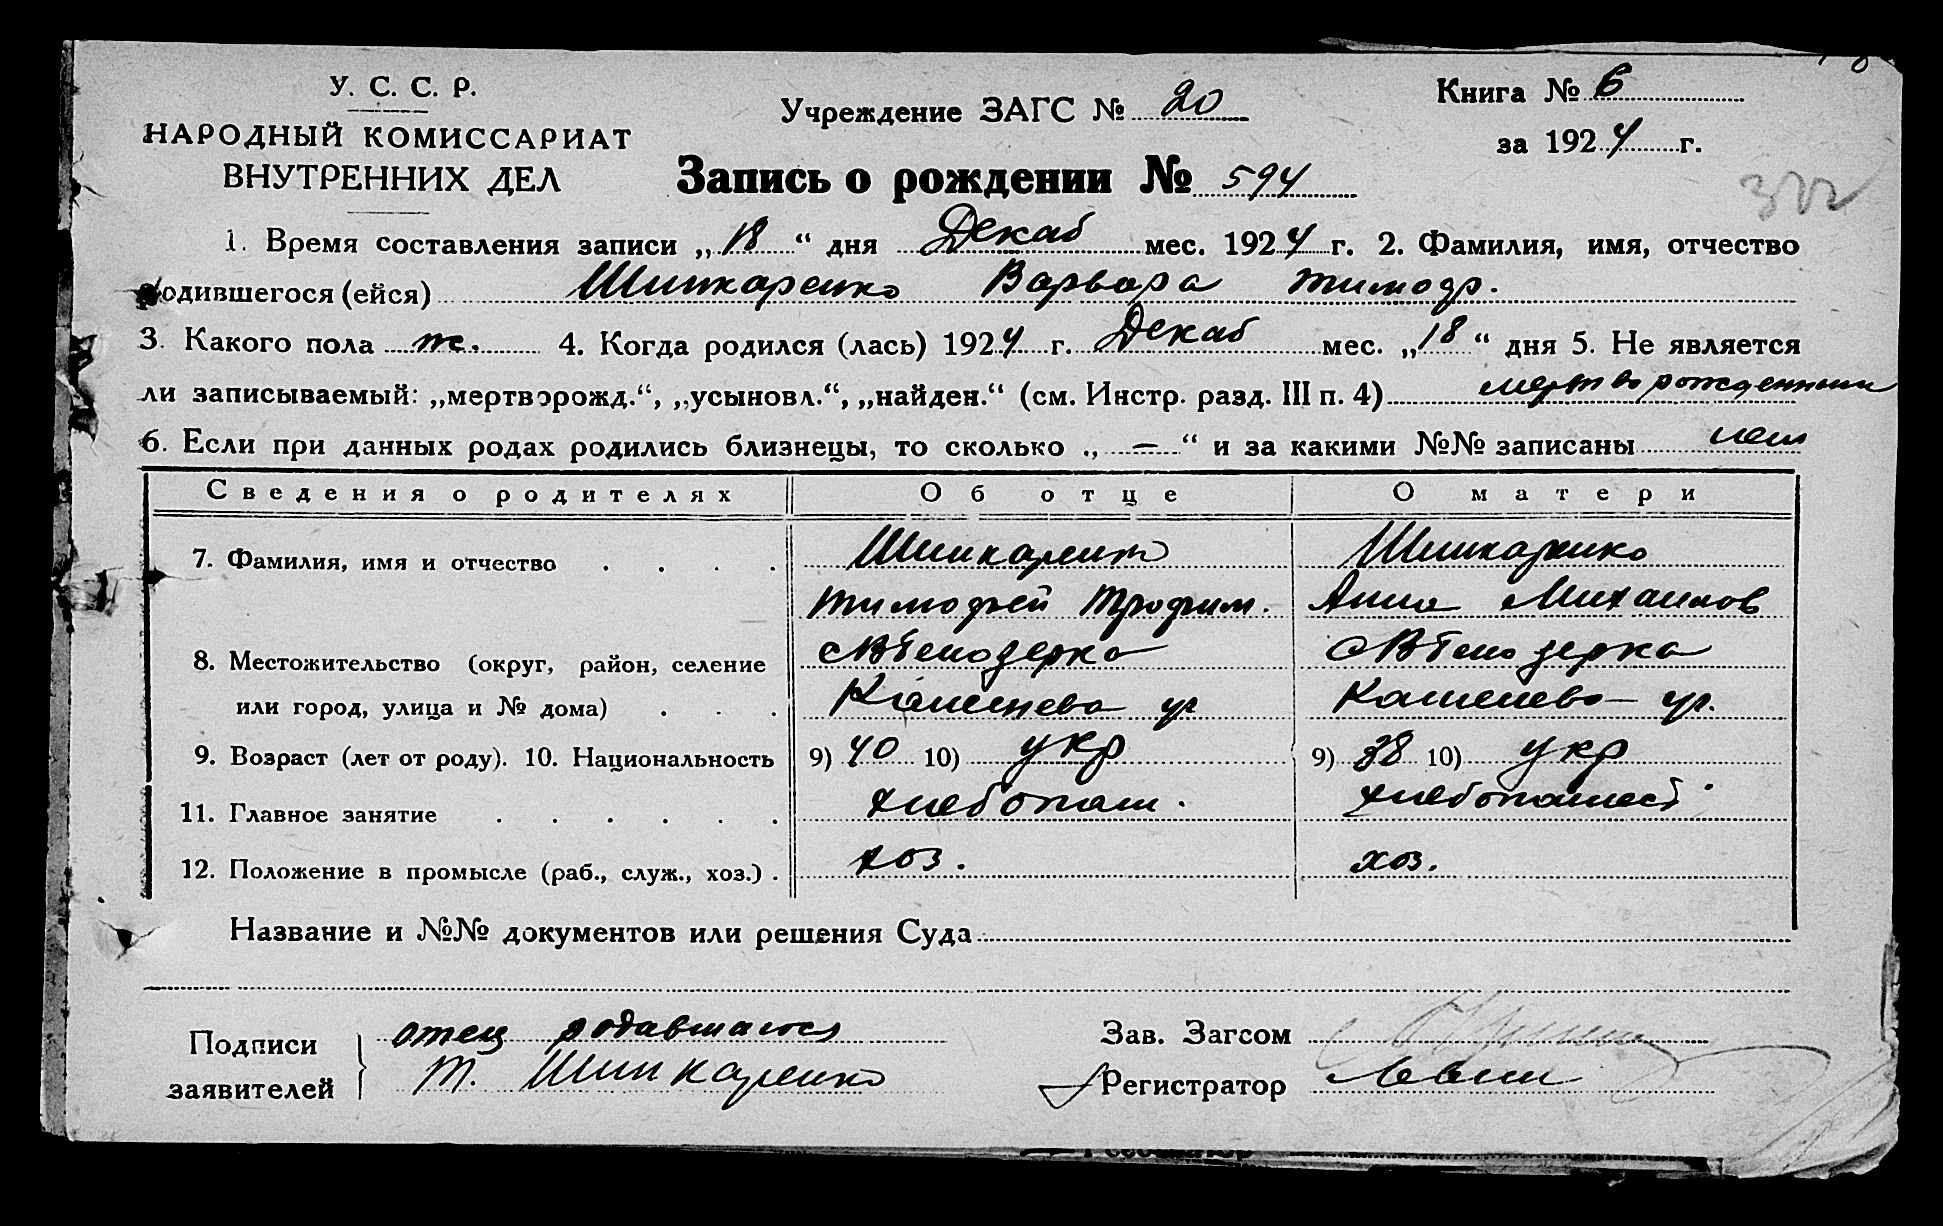 У. С. С. Р.
НАРОДНЫЙ КОМИССАРИАТ
ВНУТРЕННИХ ДЕЛ
Учреждение ЗАГС № 20
Книга № 6
за 1924 г.
Запись о рождении № 594
322
1. Время составления записи „18“ дня Декаб мес. 1924 г. 2. Фамилия, имя, отчество
родившегося (ейся) Шинкаренко Варвара Тимофр.
3. Какого пола ж. 4. Когда родился (лась) 1924 г. Декаб мес. „18“ дня 5. Не является
ли записываемый: „мертворожд.“, „усыновл.“, „найден.“ (см. Инстр. разд. III п. 4) мертворожденным
6. Если при данных родах родились близнецы, то сколько „—“ и за какими №№ записаны нет
Сведения о родителях Об отце О матери
7. Фамилия, имя и отчество Шинкаренко Шинкаренко
Тимофей Трофим. Анна Михайлов
8. Местожительство (округ, район, селение
или город, улица и № дома)
9. Возраст (лет от роду). 10. Национальность 9) 40 10) укр 9) 38 10) укр
11. Главное занятие хлебопаш. хлебопашест.
12. Положение в промысле (раб., служ., хоз.) хоз. хоз.
Название и №№ документов или решения Суда
Подписи заявителей
отец родавшагося
Т. Шинкаренко
Зав. Загсом
Регистратор Левин